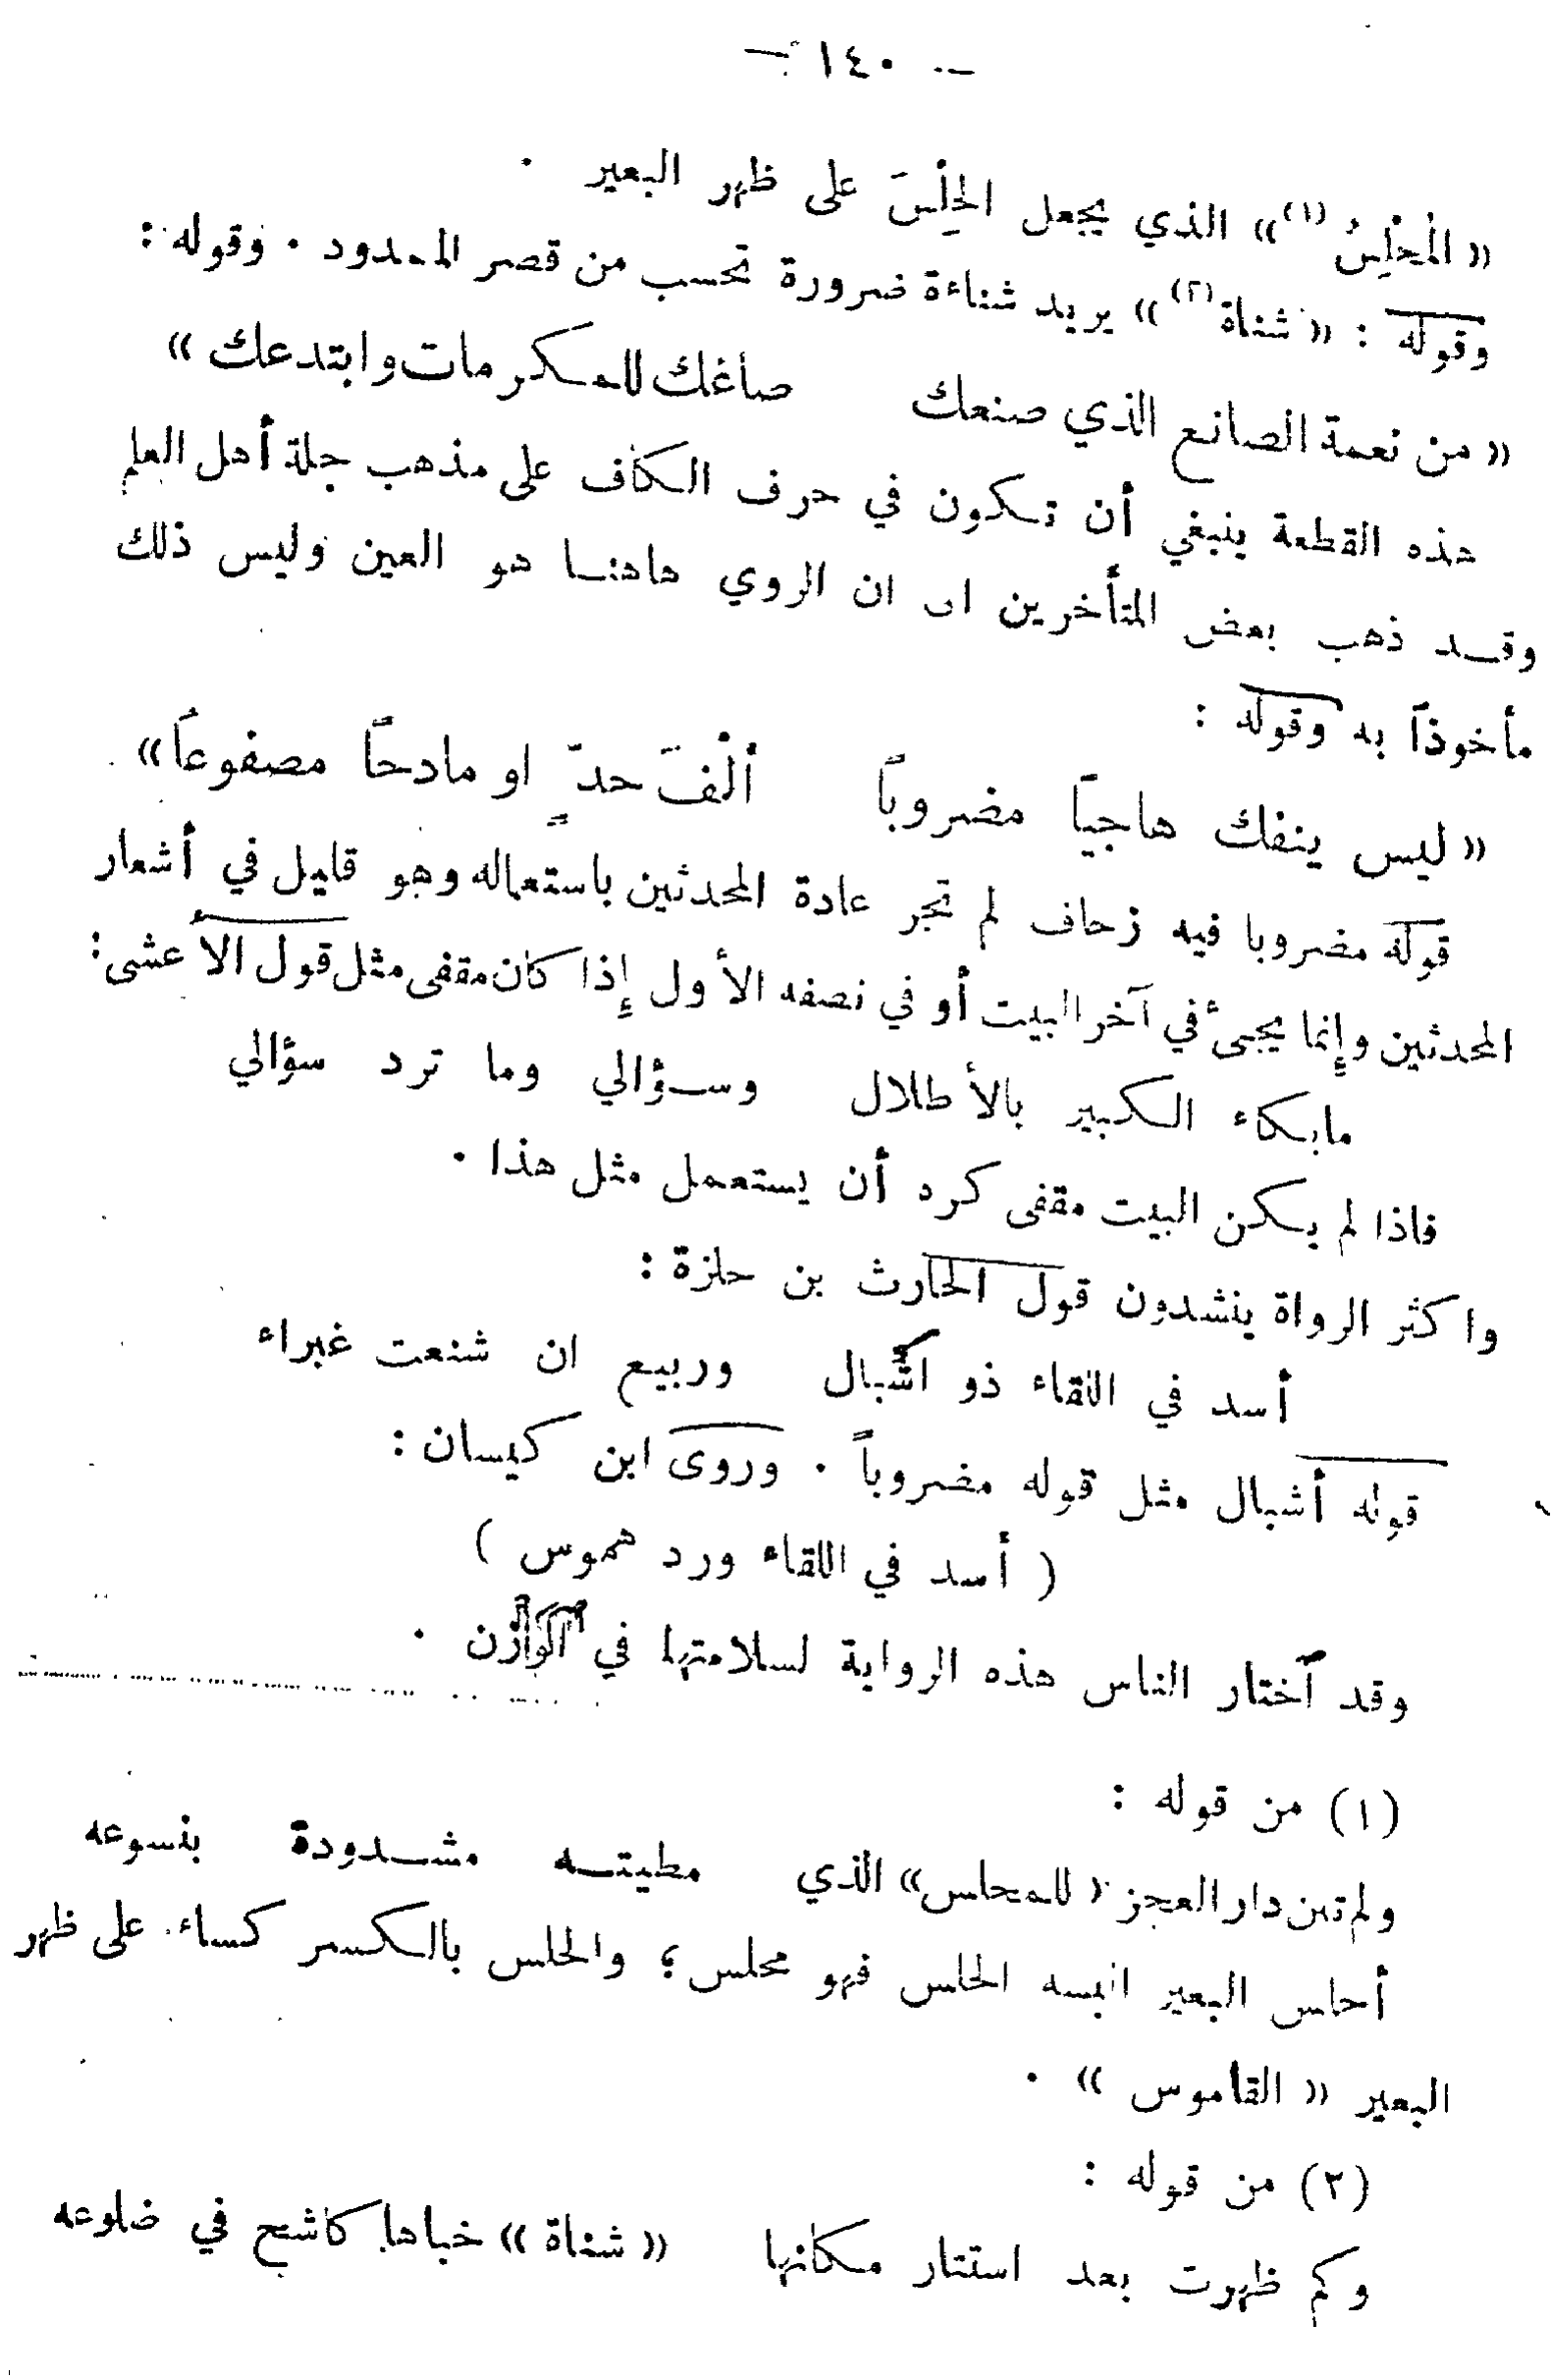 — ١٤٠ —
« المُحْلِسُ (١) » الذي يجعل الحِلْسَ على ظهر البعير .
وقوله : « شناة (٢) » يريد شناءة ضرورة تحسب من قصر الممدود . وقوله :
« من نعمة الصانع الذي صنعك صاغك للمكرمات وابتدعك »
هذه القطعة ينبغي أن تكون في حرف الكاف على مذهب جلة أهل العلم
وقد ذهب بعض المتأخرين الى ان الروي هاهنا هو العين وليس ذلك
مأخوذاً به وقوله :
« ليس ينفك هاجياً مضروباً ألْفَ حدّ ٍ او مادحاً مصفوعاً »
قوله مضروبا فيه زحاف لم تجر عادة المحدثين باستعماله وهو قليل في أشعار
المحدثين وإنما يجىء في آخر البيت أو في نصفه الأول إذا كان مقفى مثل قول الأعشى :
مابكاء الكبير بالأطلال وسؤالي وما ترد سؤالي
فاذا لم يكن البيت مقفى كره أن يستعمل مثل هذا .
واكثر الرواة ينشدون قول الحارث بن حلزة :
أسد في اللقاء ذو اشبال وربيع ان شنعت غبراء
قوله أشبال مثل قوله مضروباً . وروى ابن كيسان :
( أسد في اللقاء ورد هموس )
وقد اختار الناس هذه الرواية لسلامتها في الوزن .
(١) من قوله :
ولم تبن دار العجز « للمحلس » الذي مطيته مشدودة بنسوعه
أحلس البعير البسه الحلس فهو محلس ؛ والحلس بالكسر كساء على ظهر
البعير « القاموس » .
(٢) من قوله :
وكم ظهرت بعد استتار مكانها « شناة » خباها كاشح في ضلوعه